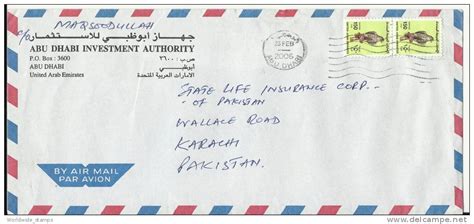 C/O MAQSOODULLAH
جهاز أبوظبي للاستثمار
ABU DHABI INVESTMENT AUTHORITY
P.O. Box : 3600
ص.ب : ٣٦٠٠
ABU DHABI
أبوظبي
United Arab Emirates
الامارات العربية المتحدة
23 FEB
2006
ABU DHABI
STATE LIFE INSURANCE CORP.
OF PAKISTAN
WALLACE ROAD
KARACHI
PAKISTAN.
BY AIR MAIL
PAR AVION
Worldwide_stamps
delcampe.net